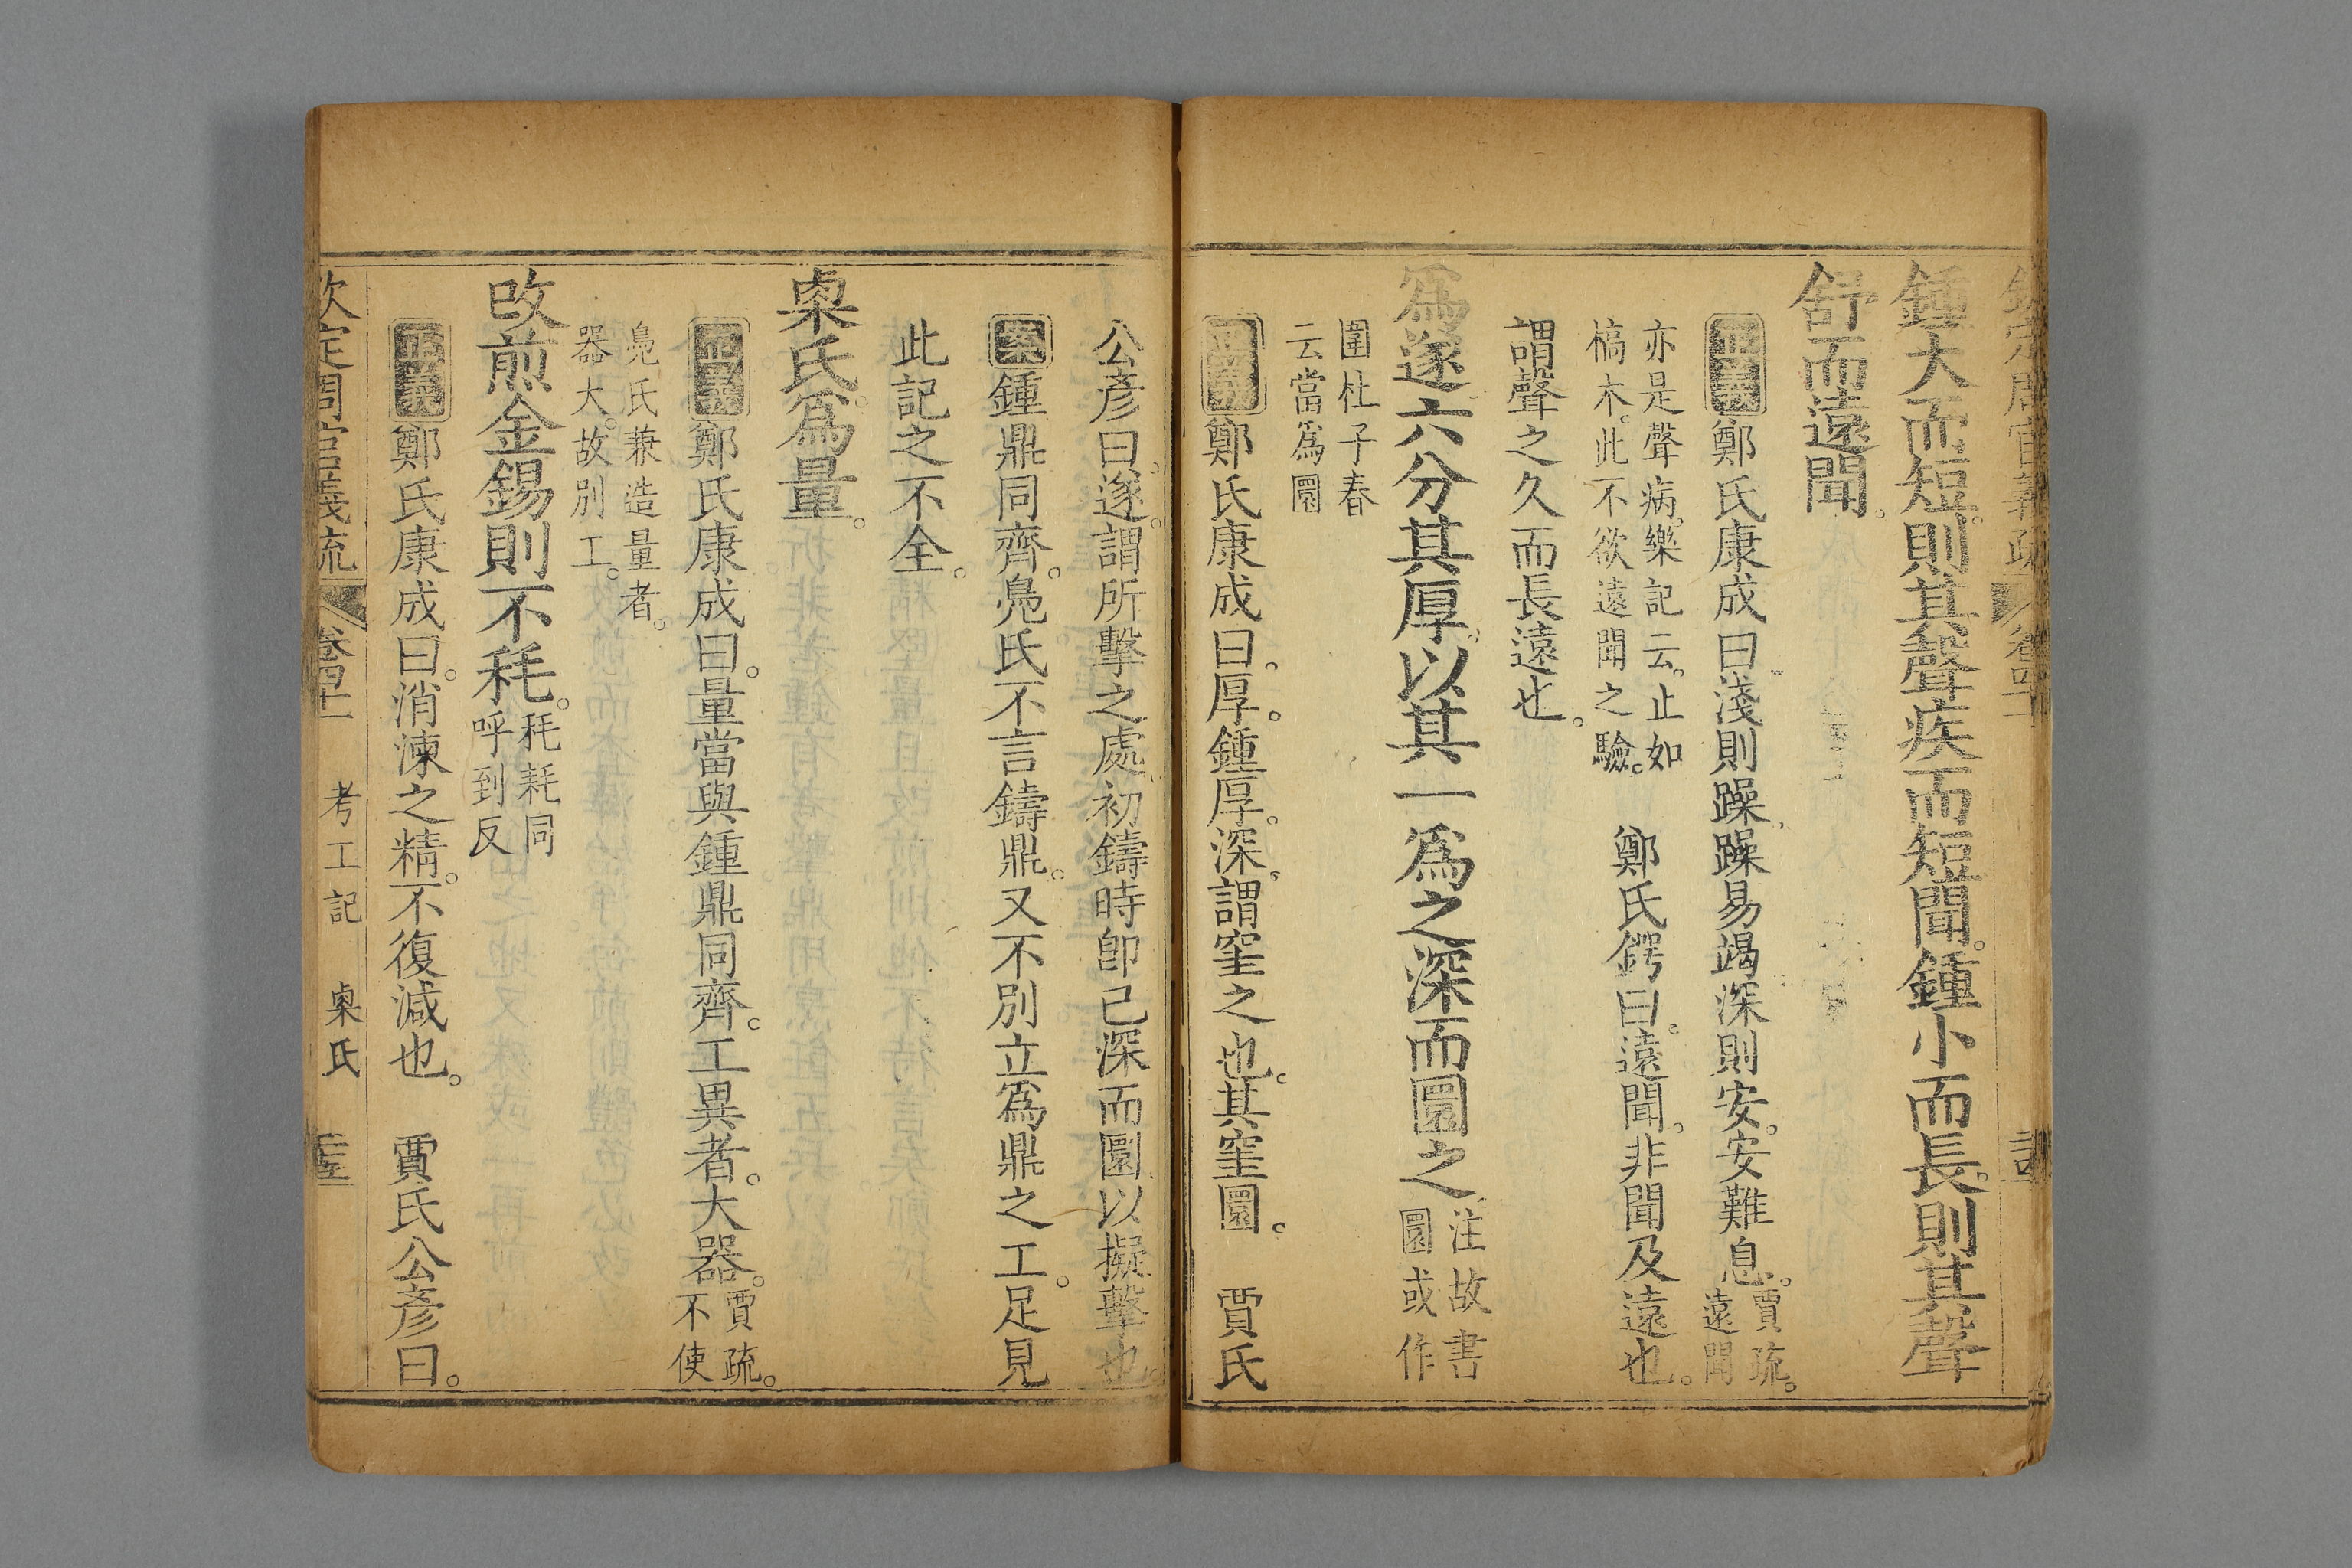 鍾大而短則其聲疾而短聞。鍾小而長。則其聲
舒而遠聞。
正義鄭氏康成曰淺則躁躁易竭深則安。安難息。賈疏。遠聞
亦是聲病。樂記云。止如槁木。此不欲遠聞之驗。 鄭氏鍔曰。遠聞。非聞及遠也。
謂聲之久而長遠也。
爲遂六分其厚。以其一爲之深而圜之。注故書圜或作
圍杜子春云當爲圜
正義鄭氏康成曰。厚。鍾厚。深。謂窐之也。其窐圜。 賈氏
公彥曰。遂。謂所擊之處。初鑄時卽已深而圜以擬擊也。
案鍾鼎同齊。鳧氏不言鑄鼎。又不別立爲鼎之工。足見
此記之不全。
㮚氏。爲量。
正義鄭氏康成曰。量當與鍾鼎同齊。工異者。大器。賈疏。不使
鳧氏兼造量者。器大。故別工。
改煎金錫則不秏。秏耗同呼到反
正義鄭氏康成曰。消湅之精。不復減也。 賈氏公彥曰。
欽定周官義疏 卷四十一 考工記 㮚氏